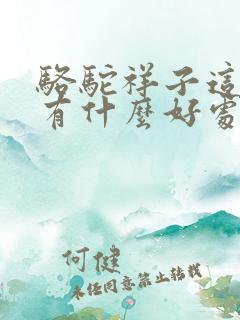 駱駝祥子這
有什麼好處
何健
未经同意禁止转载